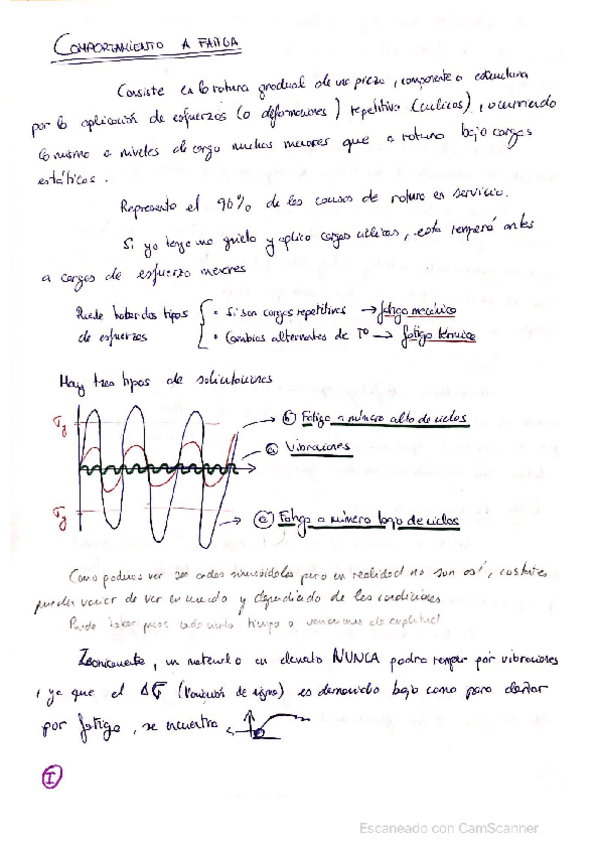 COMPORTAMIENTO A FATIGA
Consiste en la rotura gradual de una pieza, componente o estructura
por la aplicación de esfuerzos (o deformaciones) repetitivo (cíclicos), ocurriendo
lo mismo a niveles de carga muchos menores que a rotura bajo cargas
estáticos.
Representa el 90% de las causas de rotura en servicio.
Si yo tengo una grieta y aplico cargas cíclicas, esta romperá antes
a cargas de esfuerzo menores
Puede haber dos tipos
de esfuerzos
• Si son cargas repetitivas → fatiga mecánica
• Cambios alternantes de Tº → fatiga térmica
Hay tres tipos de solicitaciones
σy
b) Fatiga a número alto de ciclos
a) Vibraciones
σy
c) Fatiga a número bajo de ciclos
Como podemos ver son ondas sinusoidales pero en realidad no son así,
pueden variar de vez en cuando y dependiendo de las condiciones
Puede haber cada cierto tiempo o variaciones de amplitud
Teóricamente, un material en elevado NUNCA podrá romper por vibraciones
, ya que el Δσ (Variación de sigma) es demasiado bajo como para dañar
por fatiga, se encuentra
I
Escaneado con CamScanner